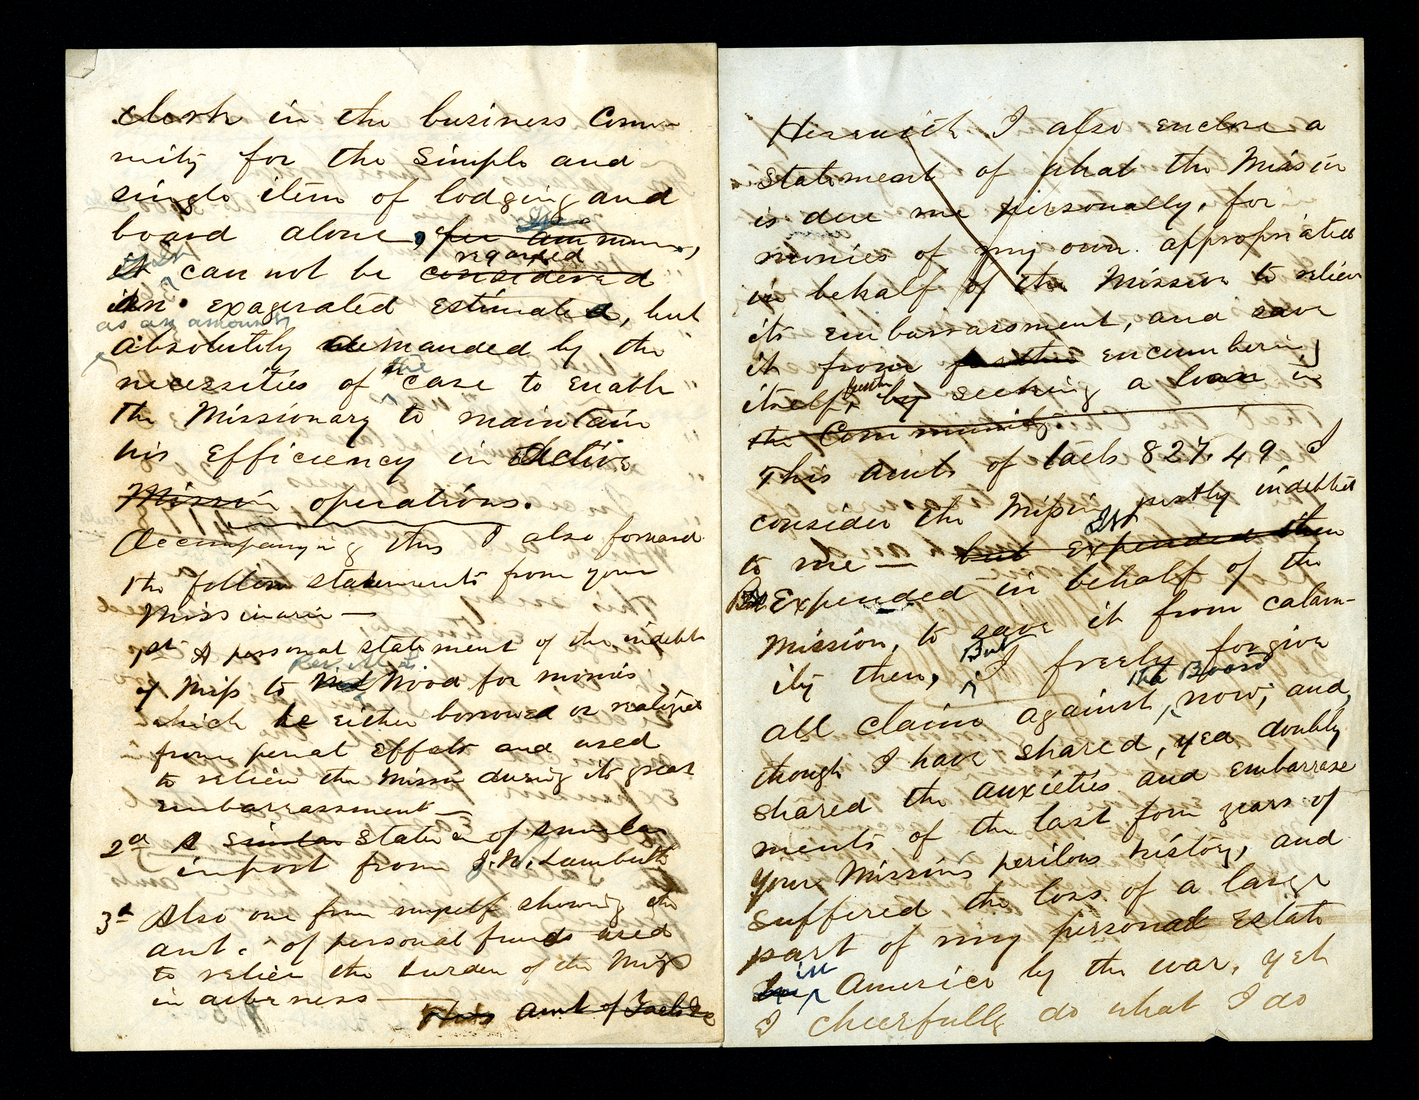 clerk in the business Commu-
nity for the simple and
single item of lodging and
board alone, per ammum,
it can not be regarded considered
an exagerated estimate, but
as an amount
absolutely demanded by the
necessities of the case to enable
the Missionary to maintain
his efficiency in active
Mission operations.
Accompanying this I also forward
the follow statements from your
Missionarie —
1st A personal statement of the indebt
of Miss to Wood for monies
which he either borrowed or realized
from perial effects and used
to relieve the Missi during its great
embarrassment —
2d A similar state of similar
import from J. W. Lambuth
3d Also one from myself showing the
amt. of personal funds used
to relieve the burden of the Miss
indebtness —
This amt of Taels
Herewith I also enclose a
Statement of what the Mission
is due me personally, for
monies of my own appropriated
in behalf of the Mission to reliev
its embarrassment, and save
it from further encumbering
itself, by seeking a loan in
the Community
This amt of taels 827.49 I
consider the Mission justly indebted
to me — but expended then
Expended in behalf of the
Mission, to save it from calam-
ity then, But I freely forgive
all claim against the Board now, and,
though I have shared, yea doubly
shared the anxieties and embarrass
ments of the last four years of
your Missions perilous history, and
suffered the loss of a large
part of my personal Estate
in America by the war, yet
I cheerfully do what I do